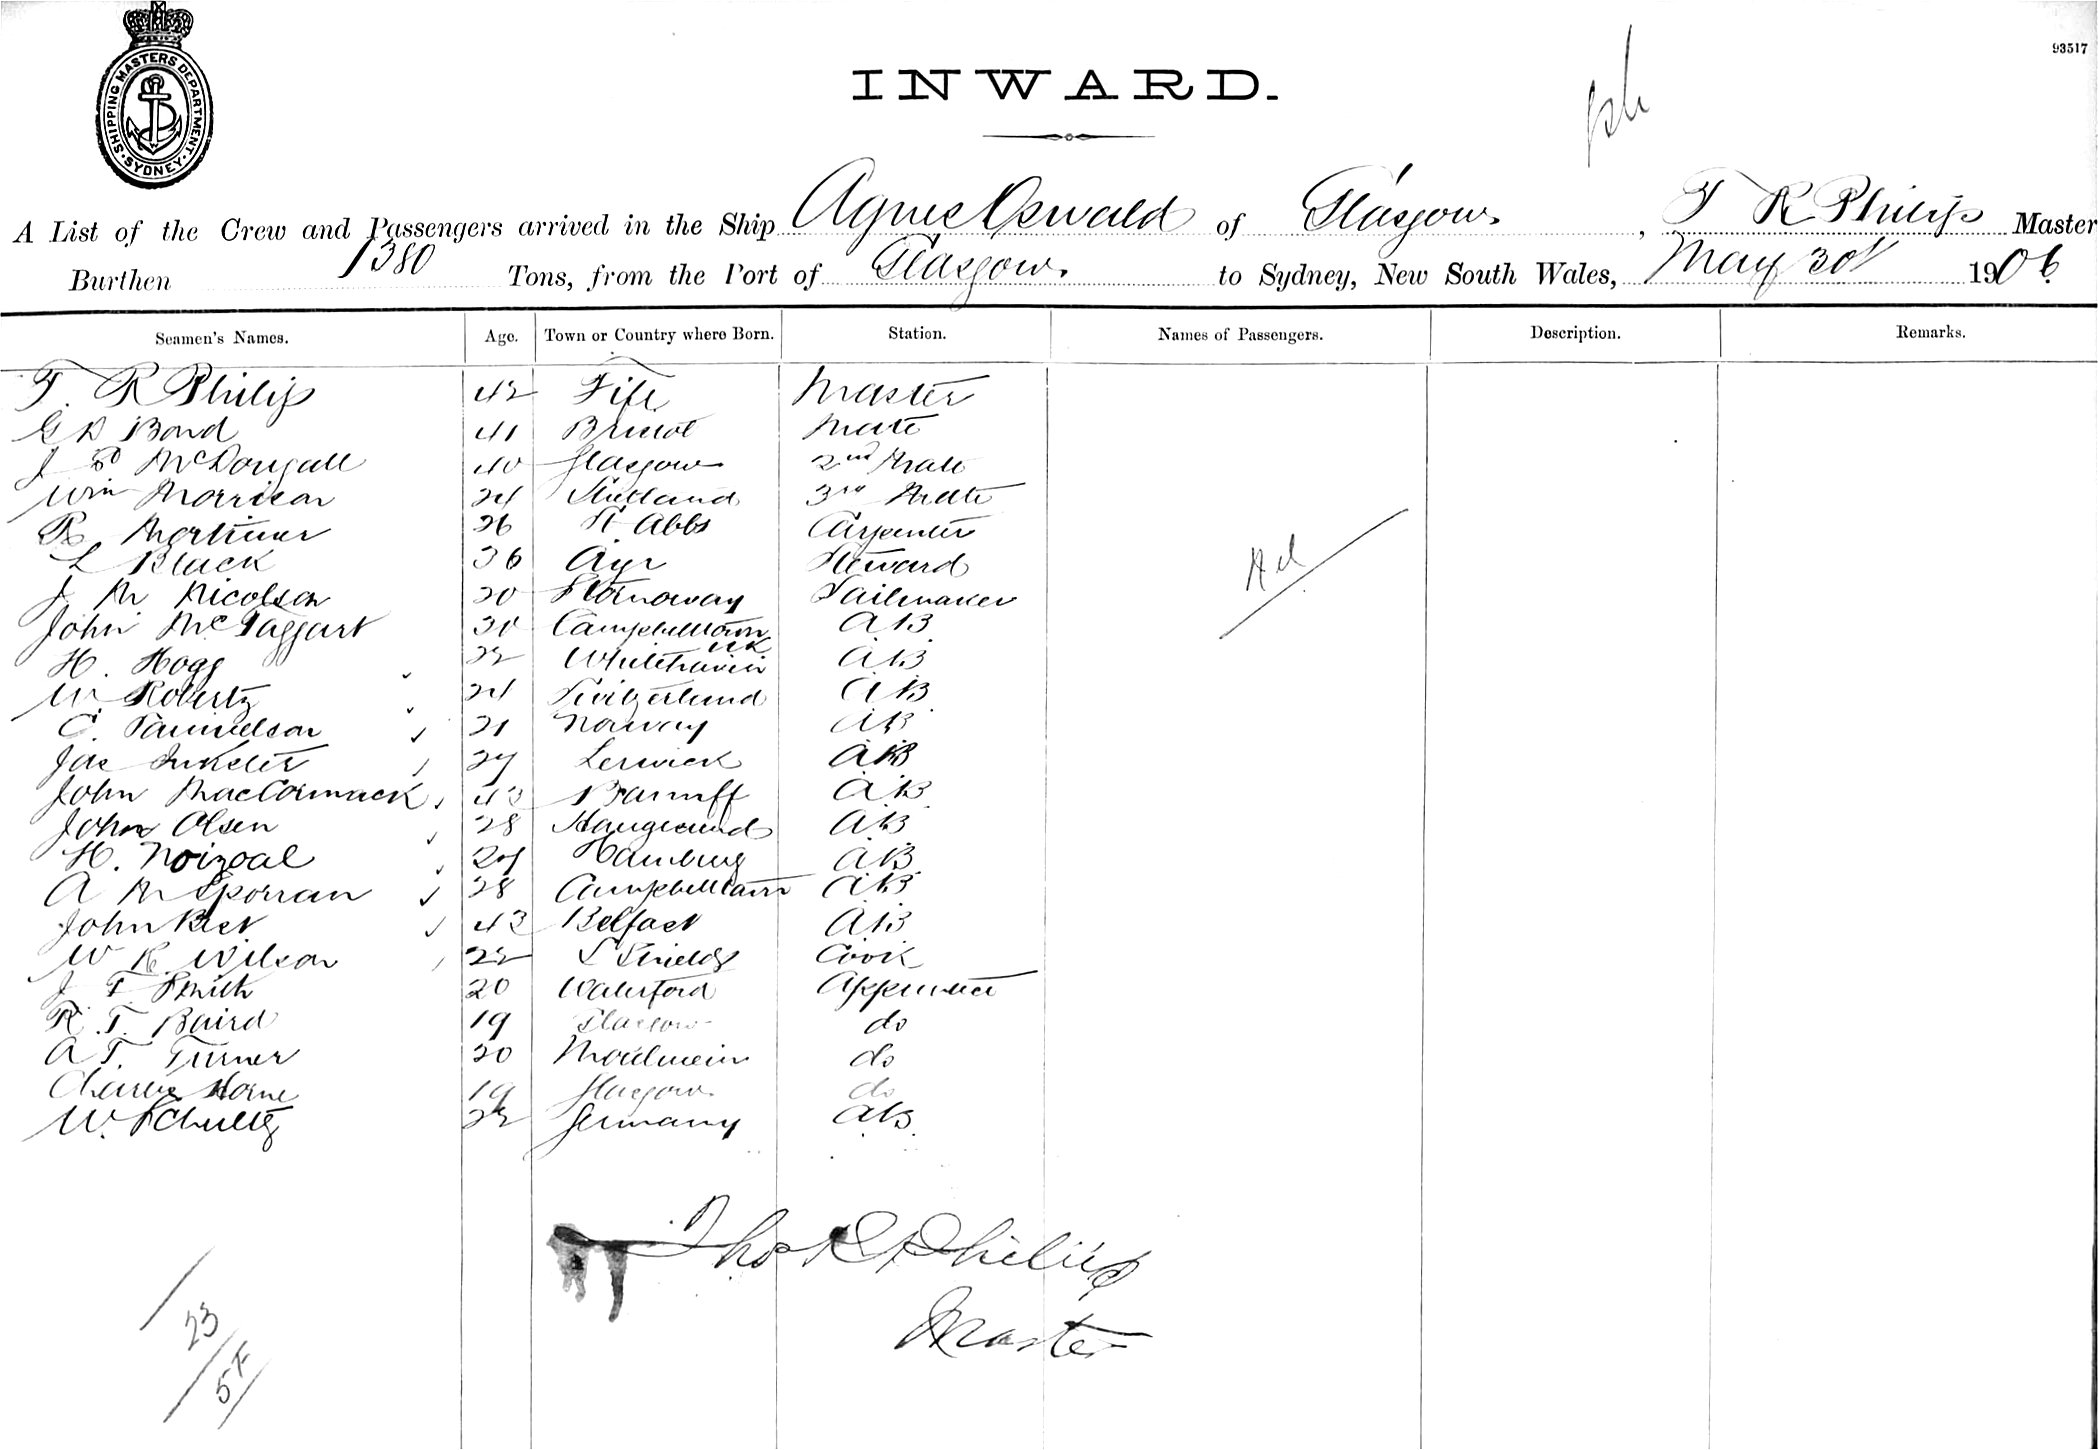 93517
SHIPPING MASTERS DEPARTMENT. SYDNEY
INWARD.
A List of the Crew and Passengers arrived in the Ship Agnes Oswald of Glasgow, T R Philip Master
Burthen 1380 Tons, from the Port of Glasgow. to Sydney, New South Wales, May 30 1906.
Seamen's Names. Age. Town or Country where Born. Station. Names of Passengers. Description. Remarks.
T. R Philip 42 Fife Master
G D Bond 41 Bristol Mate
J McDougall 40 Glasgow 2nd Mate
Wm Morrison 24 Shetland 3rd Mate
R Mortimer 26 St Abbs Carpenter
L Black 36 Ayr Steward
J M Nicolson 20 Stornoway Sailmaker
John McTaggart 30 Campbelltown AB
H. Hogg 22 Whitehaven UK AB
W Robertz 24 Switzerland AB
C. Samuelson 21 Norway AB
Jas Inkster 27 Lerwick AB
John MacCormack 43 Bamff AB
John Olsen 28 Haugesund AB
H. Noizoal 24 Hamburg AB
A McSporran 28 Campbelltown AB
John Best 43 Belfast AB
W R Wilson 22 S Shields Cook
J T Smith 20 Waterford Apprentice
R. T. Baird 19 Glasgow do
A T. Turner 20 Moulmein do
Charles Horne 19 Glasgow do
W. Schultz 22 Germany AB
Thos R Philip
Master
23
5 F